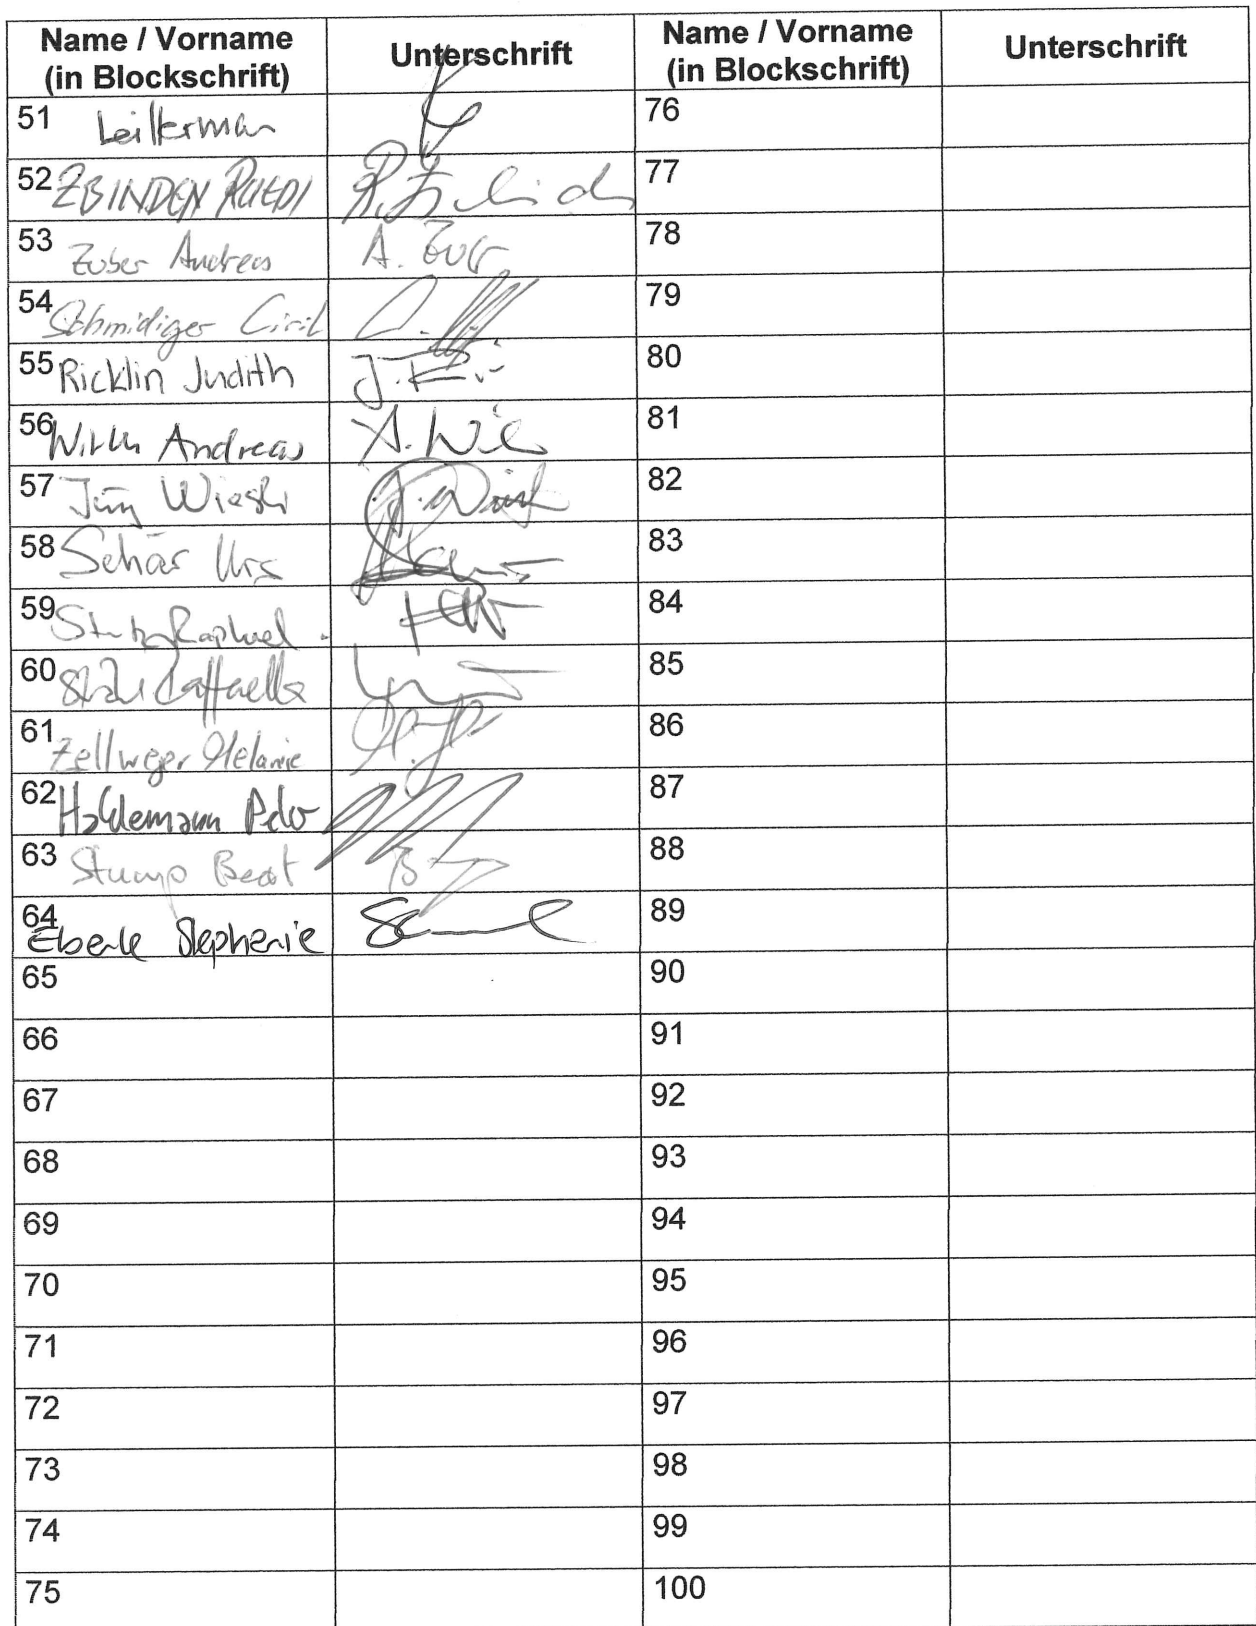 Name / Vorname
(in Blockschrift)
Unterschrift
Name / Vorname
(in Blockschrift)
Unterschrift
51
76
52 ZBINDEN RUEDI
77
53 Zuber Andreas A. Zub
78
54 Schmidiger Ciril
79
55 Ricklin Judith
80
56 Wirth Andreas
81
57 Jürg
82
58 Schär Urs
83
59 Raphael
84
60 Raffaella
85
61 Zellweger Melanie
86
62 Haldemann Peter
87
63 Stump Beat
88
64 Eberle Stephanie
89
65
90
66
91
67
92
68
93
69
94
70
95
71
96
72
97
73
98
74
99
75
100